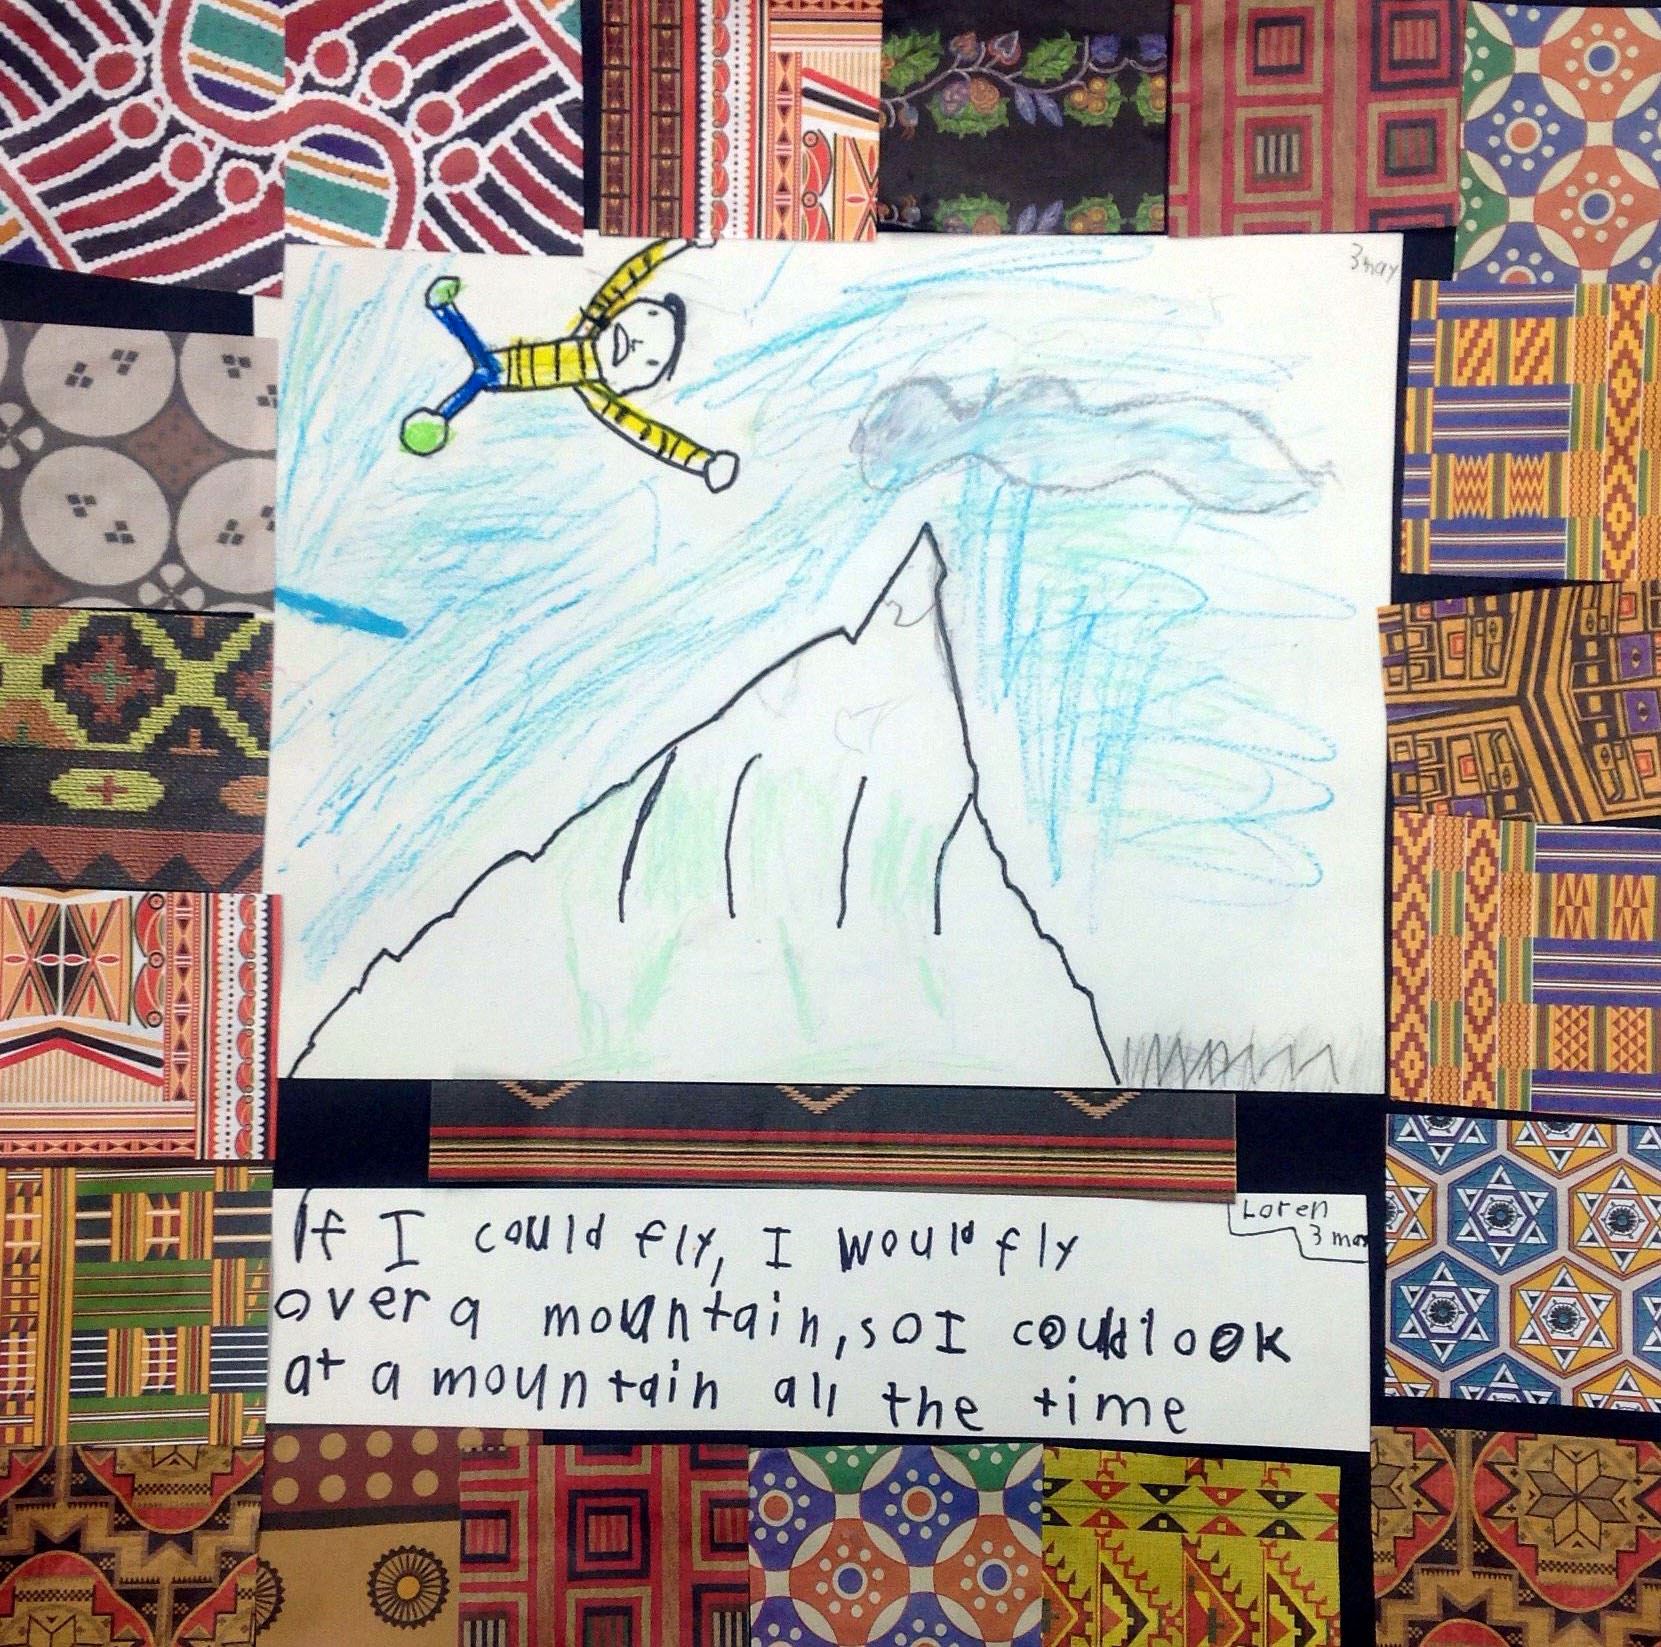 3may
Loren
If I could fly, I would fly
over a mountain, so I could look
at a mountain all the time